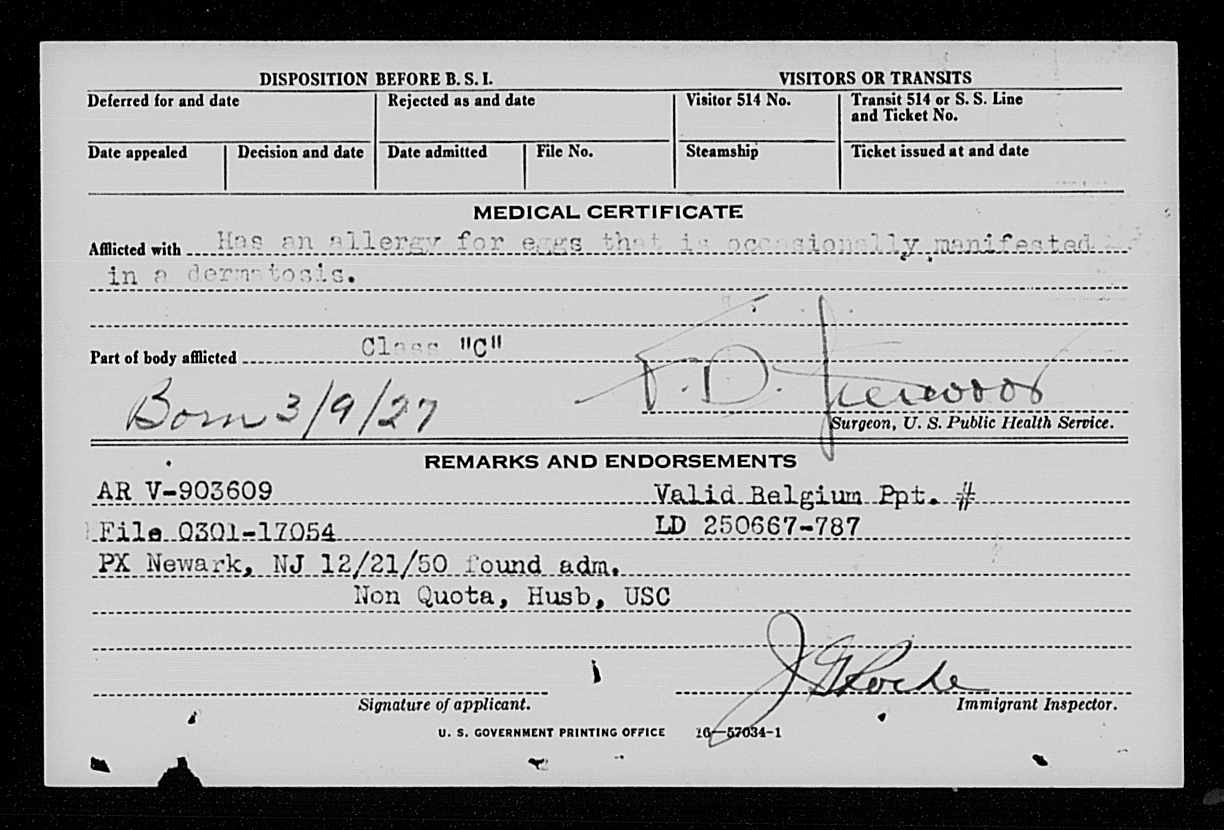 DISPOSITION BEFORE B. S. I. VISITORS OR TRANSITS
Deferred for and date Rejected as and date Visitor 514 No. Transit 514 or S. S. Line
and Ticket No.
Date appealed Decision and date Date admitted File No. Steamship Ticket issued at and date
MEDICAL CERTIFICATE
Afflicted with Has an allergy for eggs that is occasionally manifested
in a dermatosis.
Part of body afflicted Class "C"
Born 3/9/27 F. D.
Surgeon, U. S. Public Health Service.
REMARKS AND ENDORSEMENTS
AR V-903609 Valid Belgium Ppt. #
File 0301-17054 LD 250667-787
PX Newark, NJ 12/21/50 found adm.
Non Quota, Husb, USC
J G Roche
Signature of applicant. Immigrant Inspector.
U. S. GOVERNMENT PRINTING OFFICE 16—57034-1